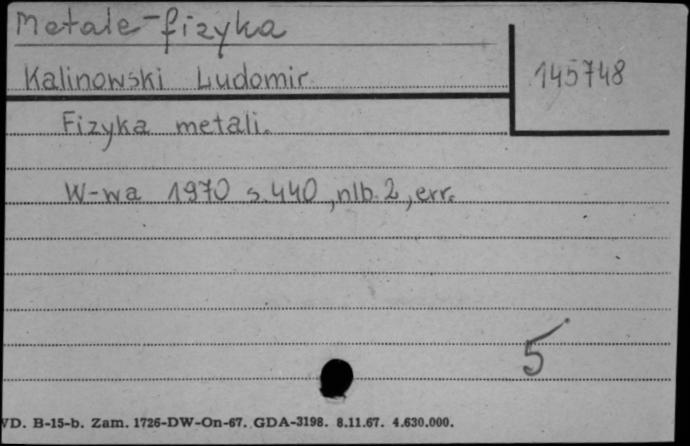 Metale-fizyka
Kalinowski Ludomir
145748
Fizyka metali.
W-wa 1970 s.440, nlb.2, err.
5
WD. B-15-b. Zam. 1726-DW-On-67. GDA-3198. 8.11.67. 4.630.000.